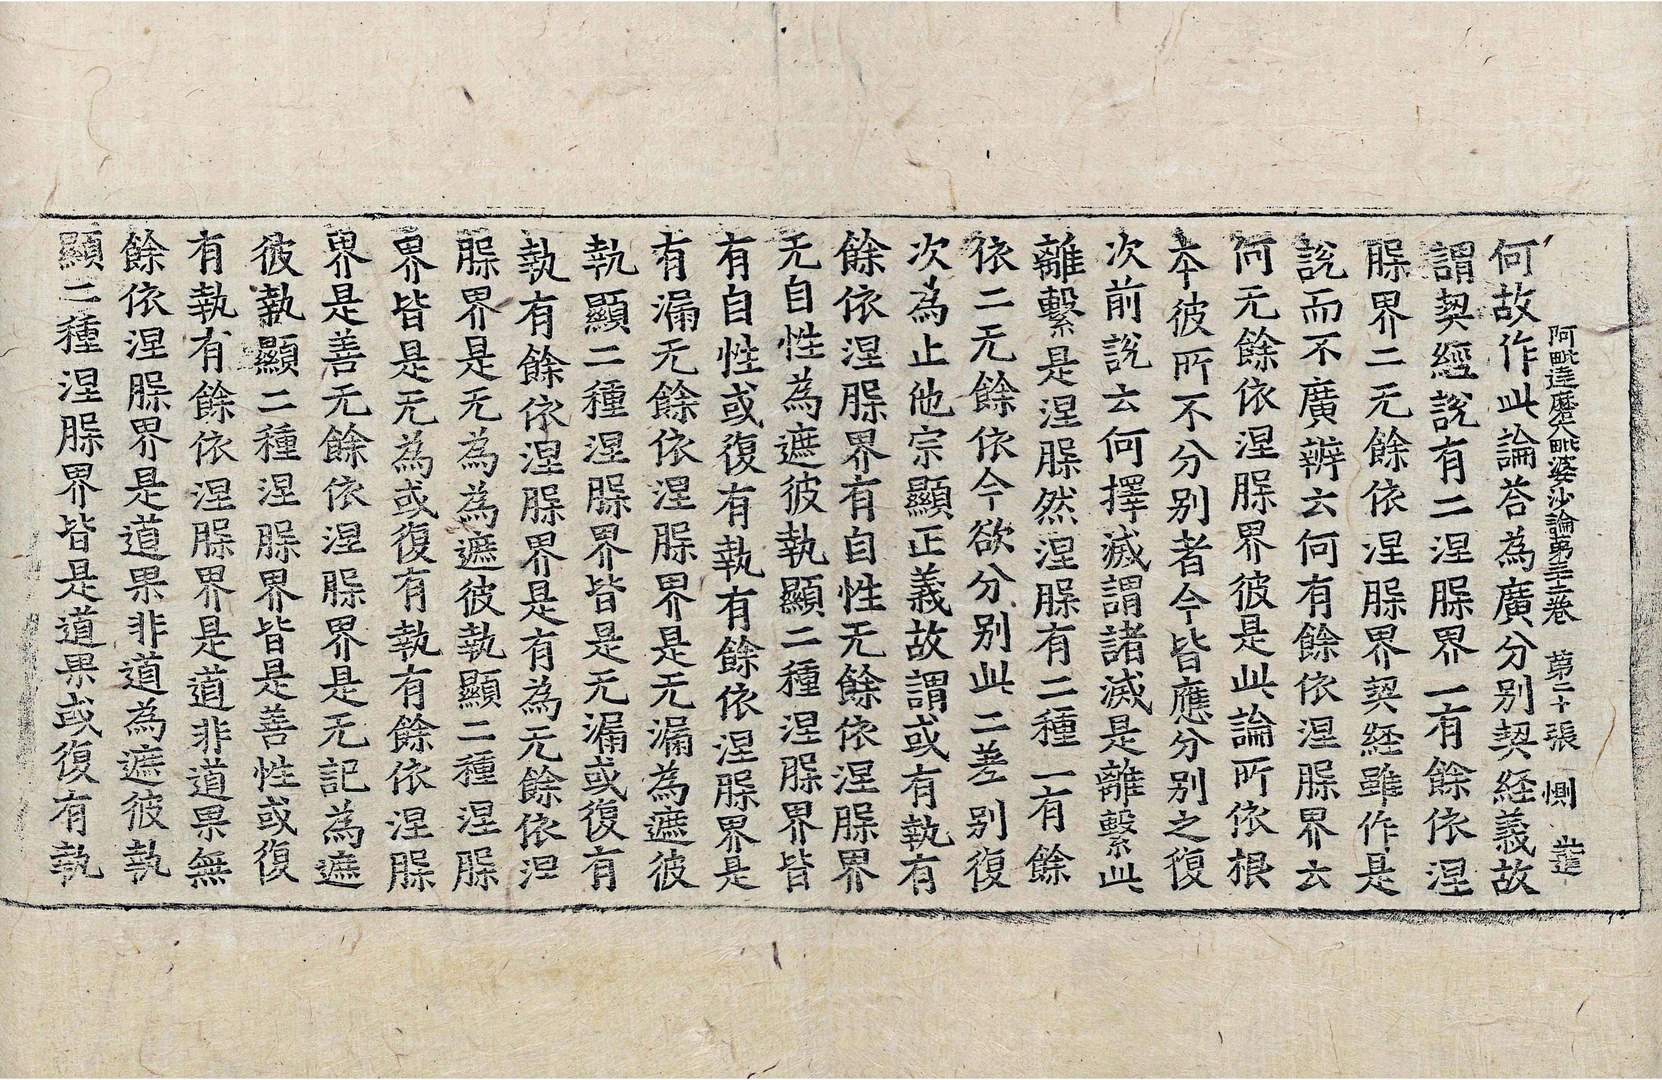 阿毗達磨大毗婆沙論第三十二卷 第二十張 惻
何故作此論荅為廣分別契経義故
謂契經說有二涅槃界一有餘依涅
槃界二无餘依涅槃界契経雖作是
說而不廣辨云何有餘依涅槃界云
何无餘依涅槃界彼是此論所依根
本彼所不分別者今皆應分別之復
次前說云何擇滅謂諸滅是離繫此
離繫是涅槃然涅槃有二種一有餘
依二无餘依今欲分別此二差別復
次為止他宗顯正義故謂或有執有
餘依涅槃界有自性无餘依涅槃界
无自性為遮彼執顯二種涅槃界皆
有自性或復有執有餘依涅槃界是
有漏无餘依涅槃界是无漏為遮彼
執顯二種涅槃界皆是无漏或復有
執有餘依涅槃界是有為无餘依涅
槃界是无為為遮彼執顯二種涅槃
界皆是无為或復有執有餘依涅槃
界是善无餘依涅槃界是无記為遮
彼執顯二種涅槃界皆是善性或復
有執有餘依涅槃界是道非道果無
餘依涅槃界是道果非道為遮彼執
顯二種涅槃界皆是道果或復有執